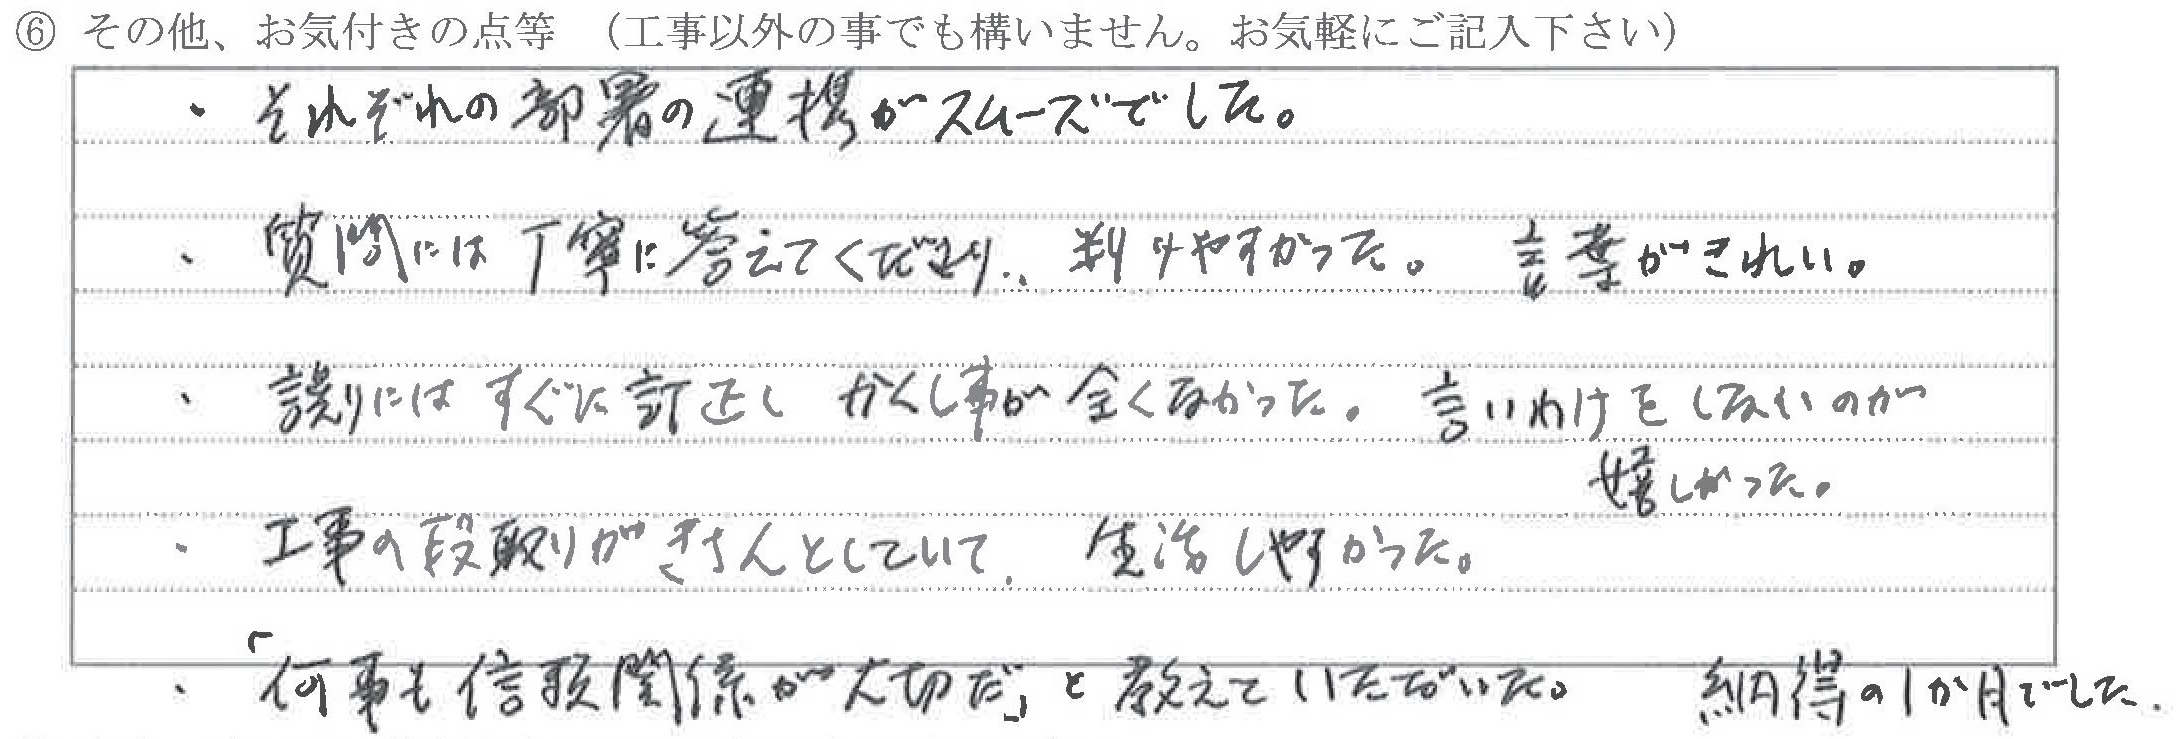 ⑥ その他、お気付きの点等 （工事以外の事でも構いません。お気軽にご記入下さい）
・ それぞれの部署の連携がスムーズでした。
・ 質問には丁寧に答えてくださり、判りやすかった。 言葉がきれい。
・ 誤りにはすぐに訂正し かくし事が全くなかった。言いわけをしないのが
嬉しかった。
・ 工事の段取りがきちんとしていて、生活しやすかった。
・ 「何事も信頼関係が大切だ」と教えていただいた。 納得の1か月でした。